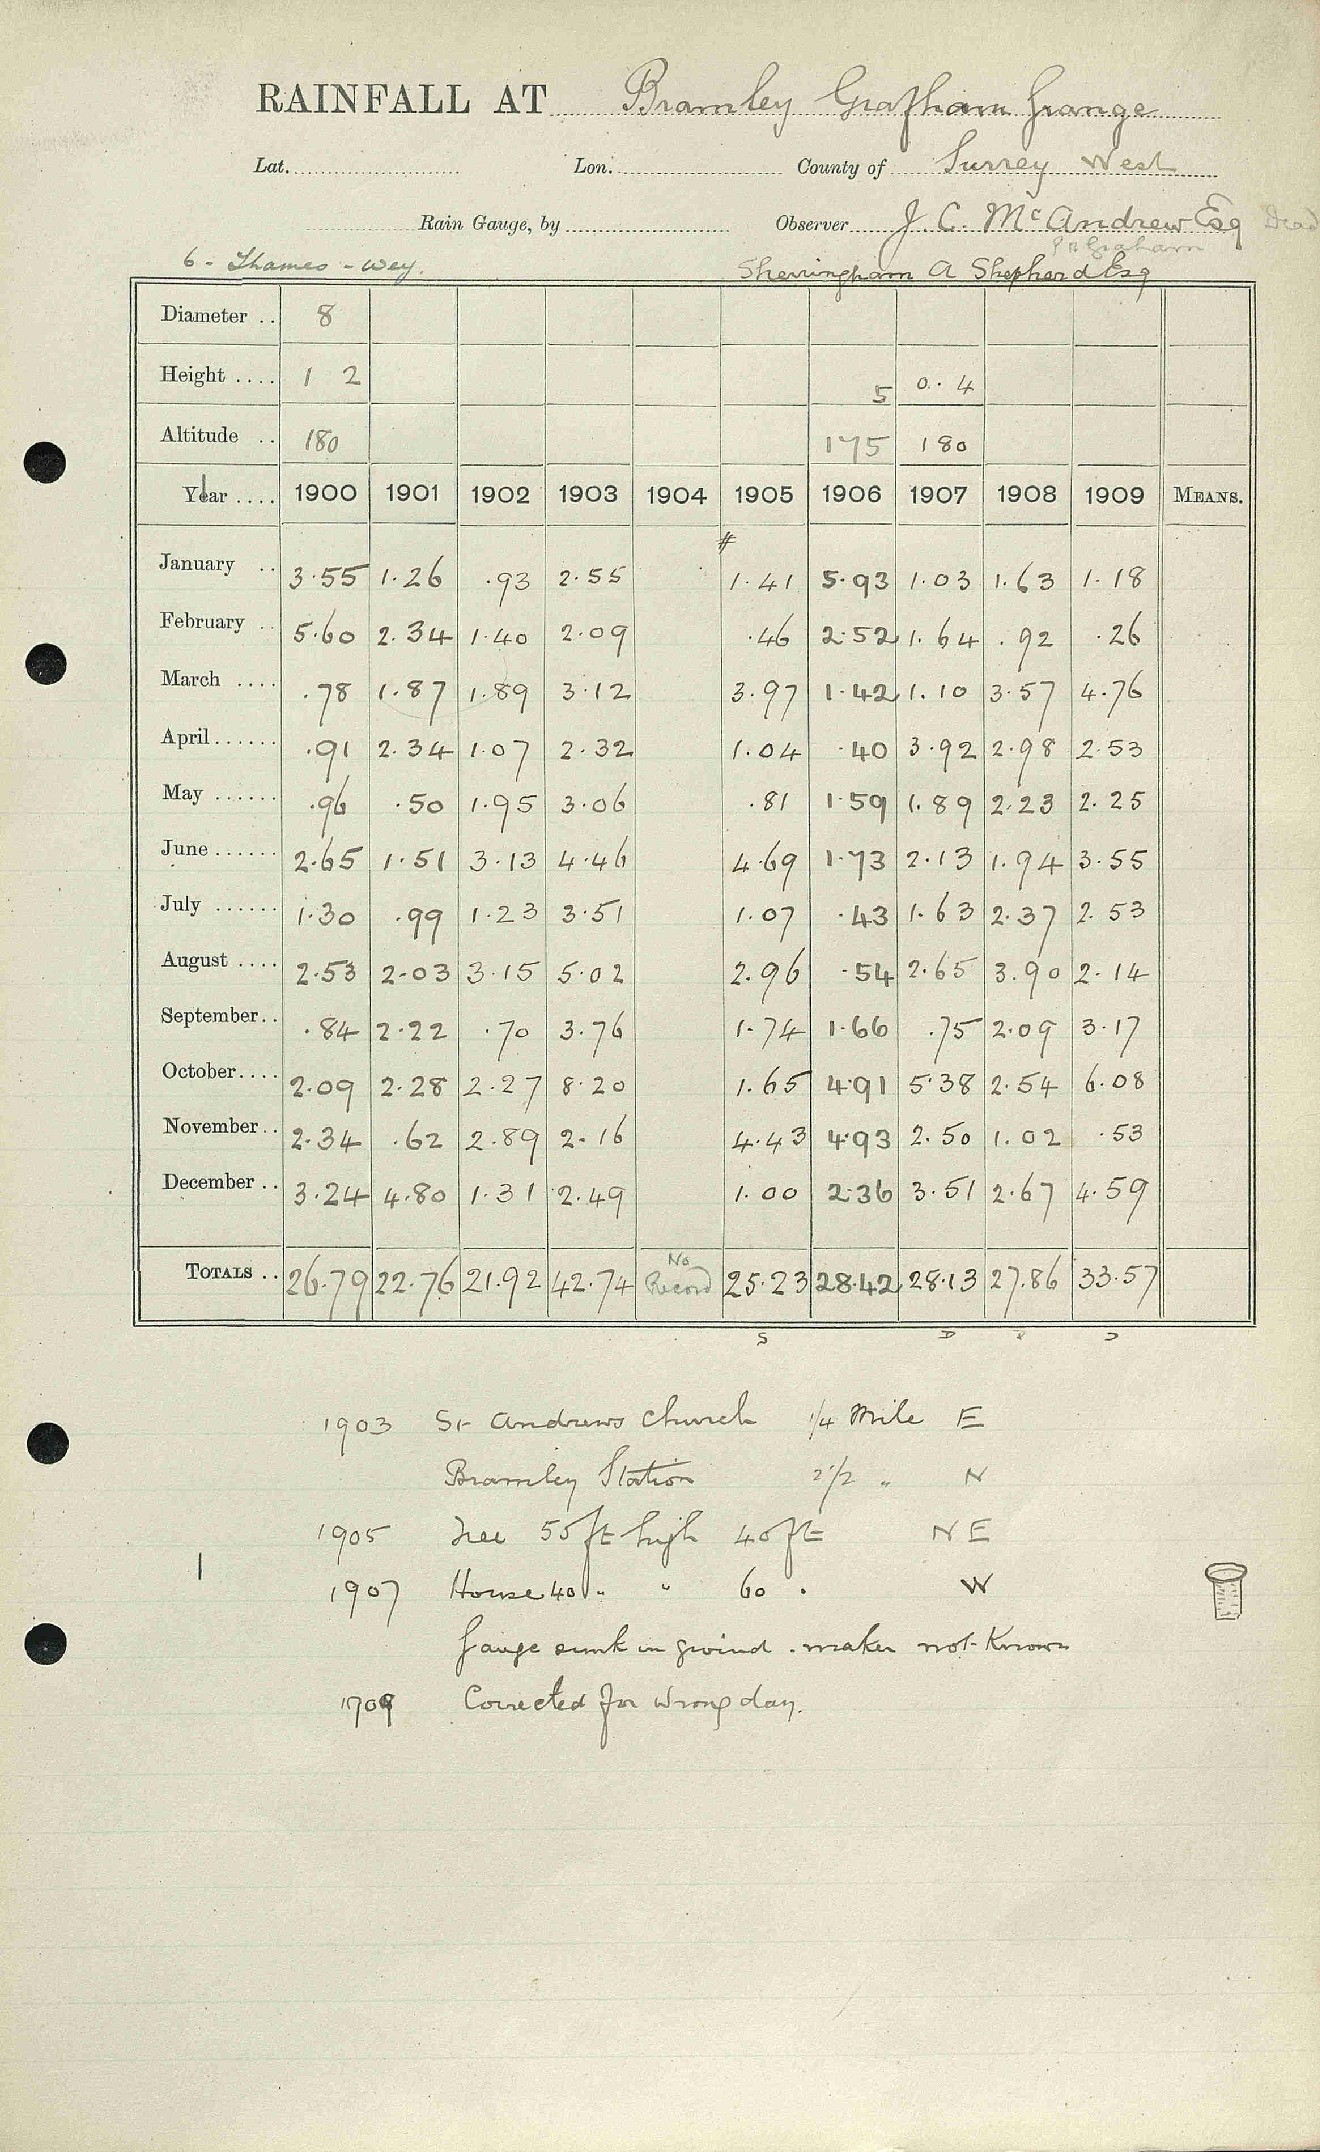 RAINFALL AT Bramley Grafham Grange
Lat. Lon. County of Surrey West
Rain Gauge, by Observer J. C. McAndrew Esq Dead
6 - Thames - Wey. Sherringham A Shepherd Esq
Diameter .. 8
Height .... 1 2 5 0. 4
Altitude .. 180 175 180
Year .... 1900 1901 1902 1903 1904 1905 1906 1907 1908 1909 MEANS.
#
January .. 3.55 1.26 .93 2.55 1.41 5.93 1.03 1.63 1.18
February .. 5.60 2.34 1.40 2.09 .46 2.52 1.64 .92 .26
March .... .78 1.87 1.89 3.12 3.97 1.42 1.10 3.57 4.76
April...... .91 2.34 1.07 2.32 1.04 .40 3.92 2.98 2.53
May ...... .96 .50 1.95 3.06 .81 1.59 1.89 2.23 2.25
June ...... 2.65 1.51 3.13 4.46 4.69 1.73 2.13 1.94 3.55
July ...... 1.30 .99 1.23 3.51 1.07 .43 1.63 2.37 2.53
August .... 2.53 2.03 3.15 5.02 2.96 .54 2.65 3.90 2.14
September.. .84 2.22 .70 3.76 1.74 1.66 .75 2.09 3.17
October.... 2.09 2.28 2.27 8.20 1.65 4.91 5.38 2.54 6.08
November.. 2.34 .62 2.89 2.16 4.43 4.93 2.50 1.02 .53
December .. 3.24 4.80 1.31 2.49 1.00 2.36 3.51 2.67 4.59
TOTALS .. 26.79 22.76 21.92 42.74 No Record 25.23 28.42 28.13 27.86 33.57
S D D
1903 St Andrews Church 1/4 Mile E
Bramley Station 2 1/2 " N
1905 Tree 55 ft high 40 ft NE
1907 House 40 " " 60 " W
Gauge sunk in ground . maker not known
1909 Corrected for wrong day.